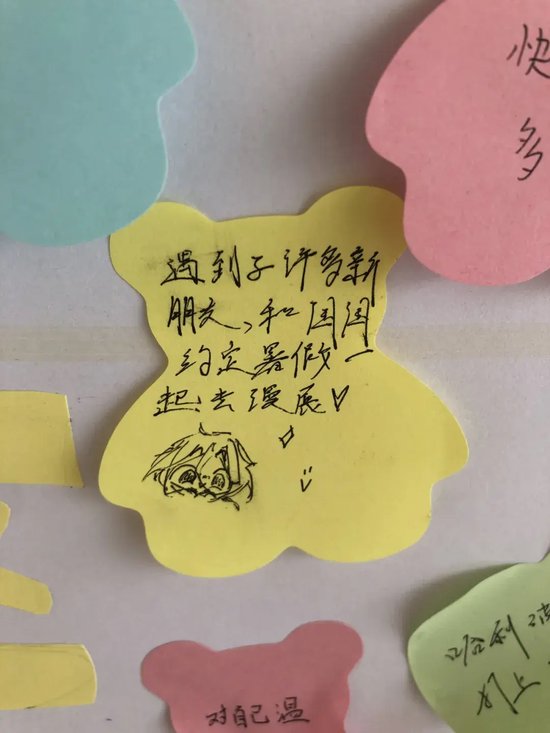 快
多
遇到了许多新
朋友,和囯囯
约定暑假一
起去漫展♡
对自己温
哈利